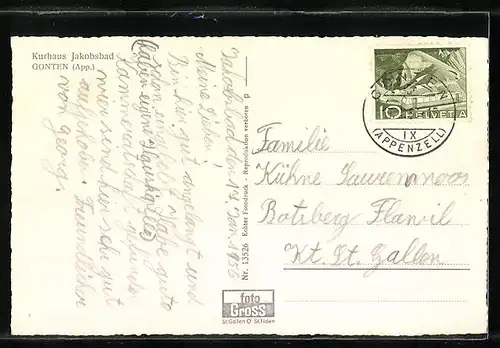 Kurhaus Jakobsbad
GONTEN (App.)
Jakobsbad den 14. Jan. 1956
Meine Lieben!
Bin hier gut angelangt und
schon Habe gute
(Haben eigene )
Kammeraden
mir sehr gut
aufgehoben. Freundlicher
von Georg.
Nr. 13526 Echter Fotodruck - Reproduktion verboten p
foto
Gross
St.Gallen O St.Fiden
10 HELVETIA
IX
(APPENZELL)
Familie
Kühne Saurenmoos
Botsberg Flawil
Kt. St. Gallen